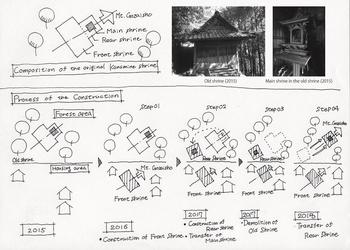 Mt. Gozaisho
Main shrine
Rear shrine
Front shrine
Composition of the original Kangmine shrine
Old shrine (2015)
Main shrine in the old shrine (2015)
Process of the Construction
Forest area
Step01
Step02
Step03
Step04
Mt. Gozaisho
Old shrine
Rear Shrine
Rear Shrine
Housing area
Mt. Gozaisho
Front Shrine
Front Shrine
Front Shrine
Front Shrine
2015
2016
2017
2017
2018
• Construction of Front Shrine
• Construction of Rear Shrine
• Transfer of Main Shrine
• Demolition of Old Shrine
Transfer of Rear Shrine